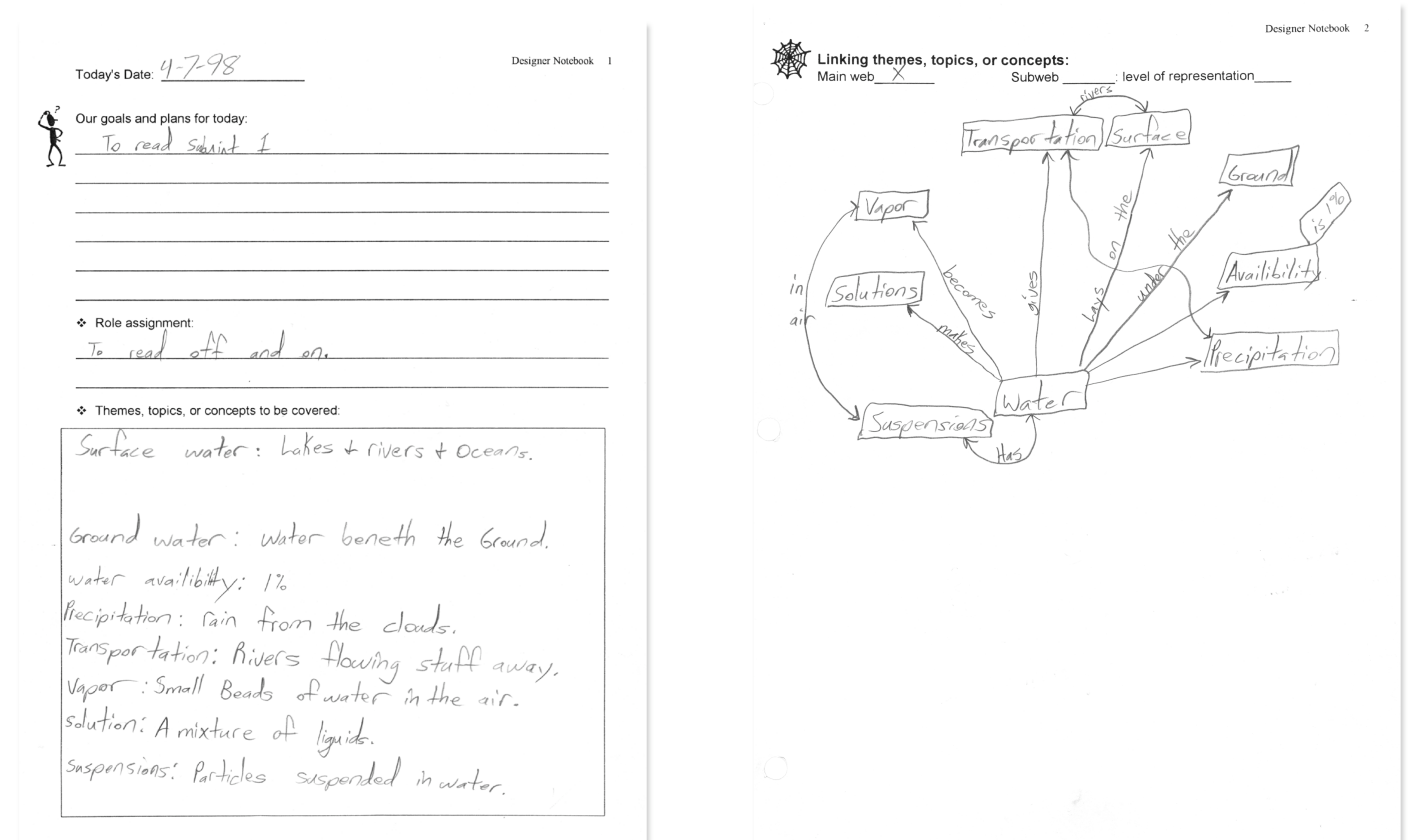 Designer Notebook 1
Today's Date: 4-7-98
Our goals and plans for today:
To read Subunit 1
❖ Role assignment:
To read off and on.
❖ Themes, topics, or concepts to be covered:
Surface water: Lakes + rivers + Oceans.
Ground water: Water beneth the Ground.
water availibility: 1%
Precipitation: rain from the clouds.
Transportation: Rivers flowing stuff away.
Vapor: Small Beads of water in the air.
solution: A mixture of liquids.
suspensions: Particles suspended in water.
Designer Notebook 2
Linking themes, topics, or concepts:
Main web X Subweb : level of representation
rivers
Transportation
Surface
Ground
is 1%
Vapor
Availibility
Solutions
Precipitation
in
air
becomes
makes
gives
Lays on the
under the
Water
Suspensions
Has